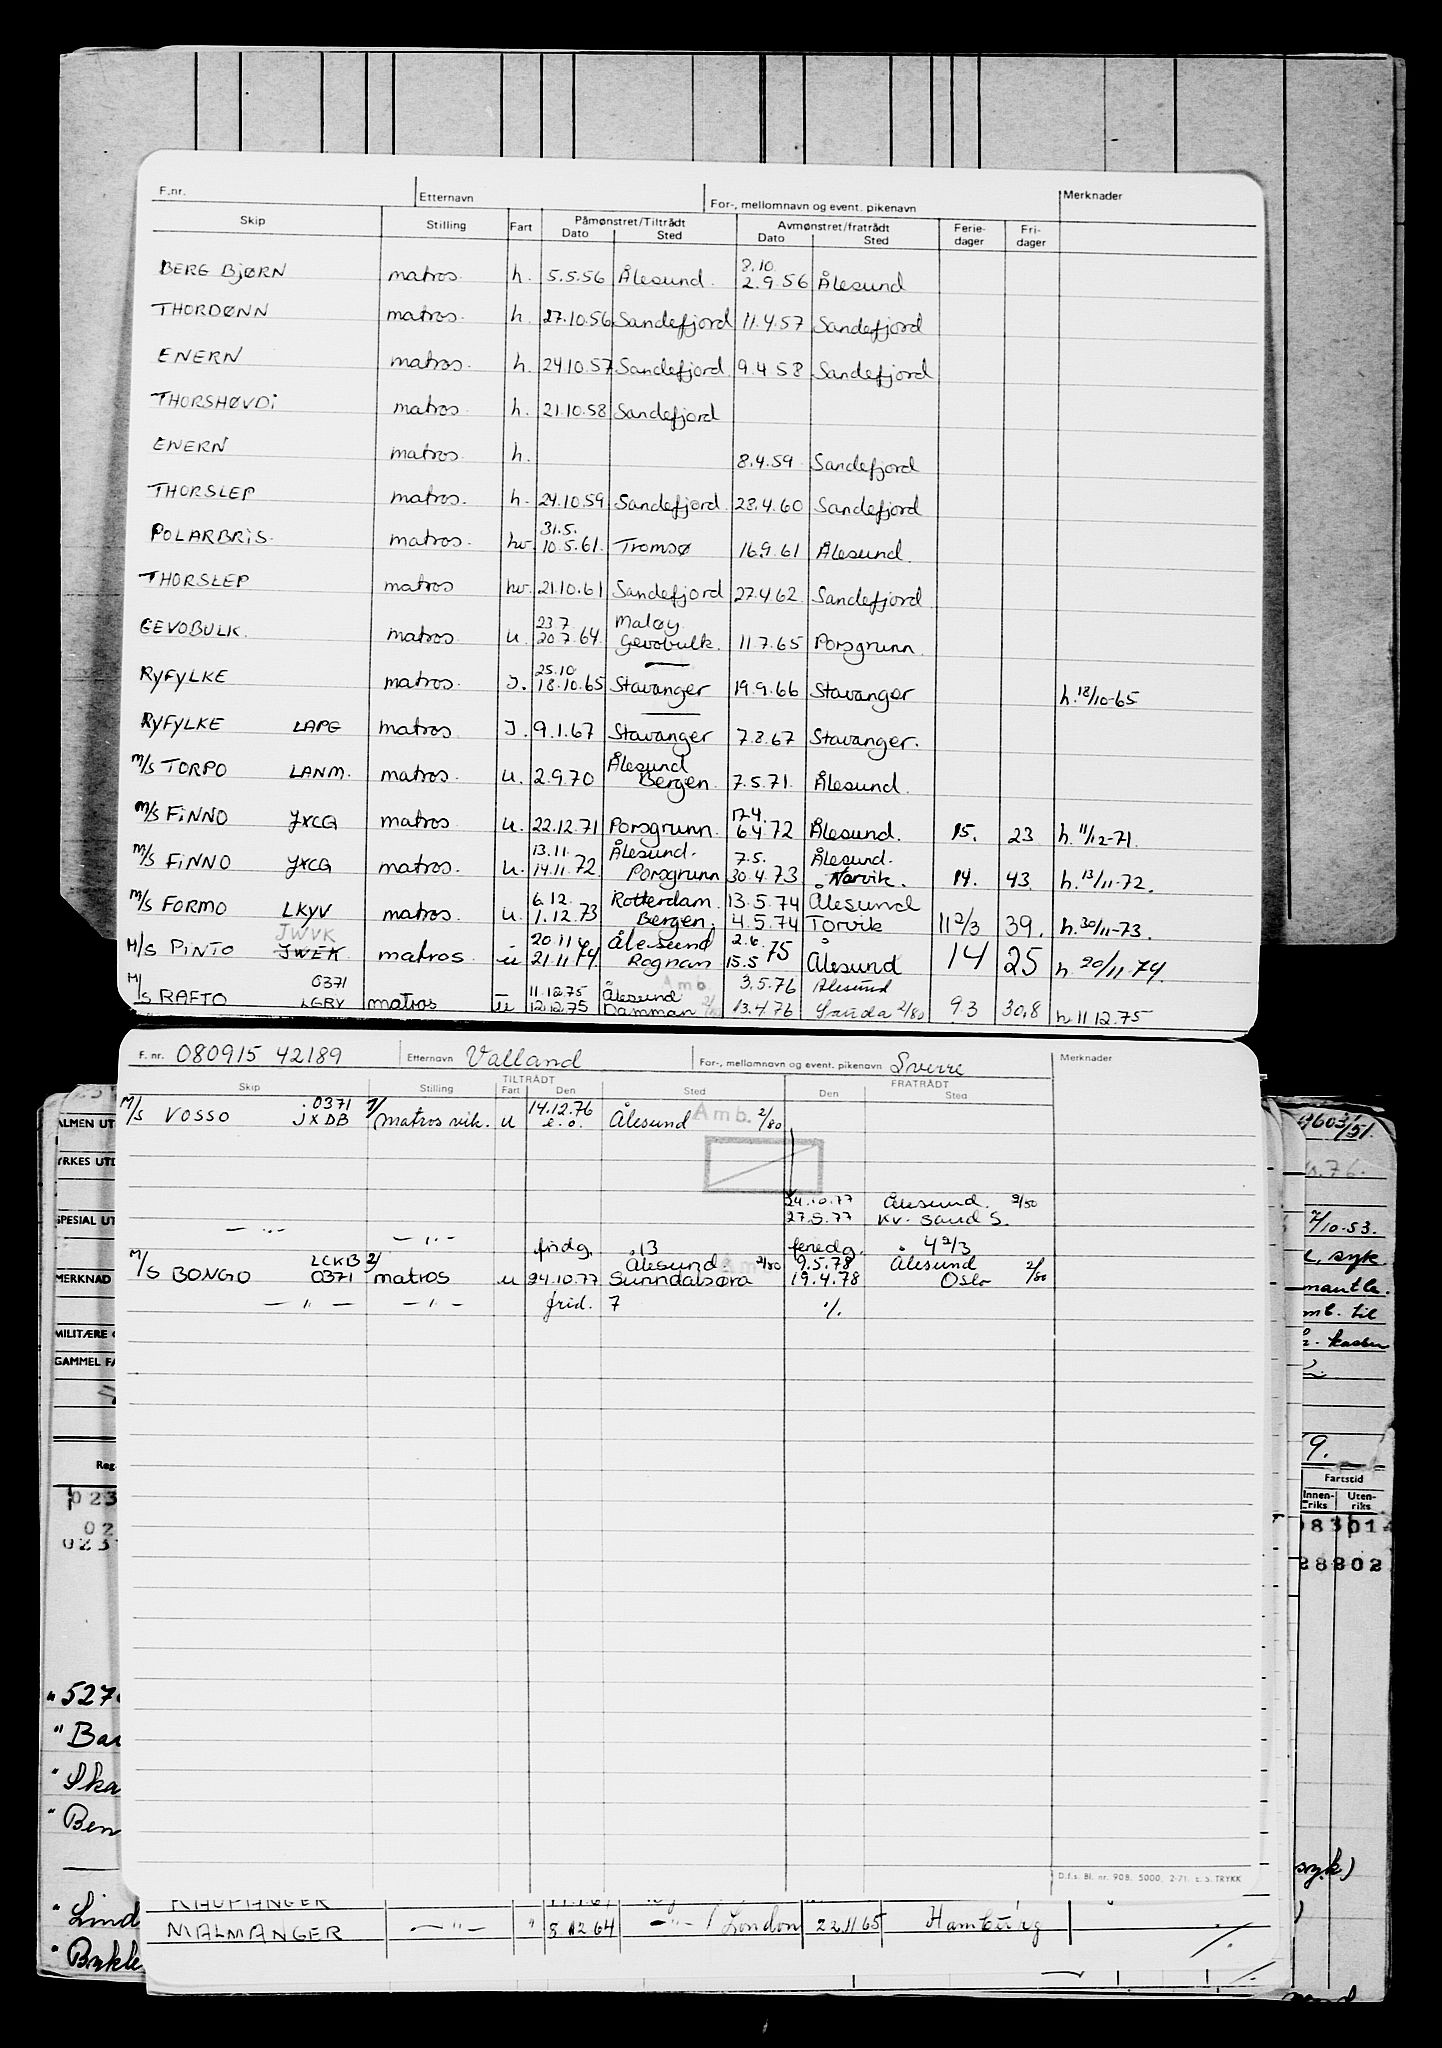 F.nr. Etternavn For-, mellomnavn og event. pikenavn Merknader
Skip Stilling Fart Påmønstret/Tiltrådt Avmønstret/fratrådt Ferie- Fri-
Dato Sted Dato Sted dager dager
8.10
BERG BJØRN matros. h. 5.5.56 Ålesund. 2.9.56 Ålesund
THORDØNN matros. h. 27.10.56 Sandefjord 11.4.57 Sandefjord
ENERN matros. h. 24.10.57 Sandefjord 9.4.58 Sandefjord
THORSHØVDI matros h. 21.10.58 Sandefjord
ENERN matros. h. 8.4.59 Sandefjord
THORSLEP matros. h. 24.10.59 Sandefjord 23.4.60 Sandefjord
31.5.
POLARBRIS. matros. hv. 10.5.61. Tromsø 16.9.61 Ålesund.
THORSLEP matros hv. 21.10.61 Sandefjord 27.4.62 Sandefjord
23.7 Måløy.
GEVOBULK. matros. u. 20.7.64 Gevobulk. 11.7.65 Porsgrunn.
25.10
RYFYLKE matros. J. 18.10.65 Stavanger 19.9.66 Stavanger h.18/10-65
RYFYLKE LAPG matros J. 9.1.67 Stavanger 7.8.67 Stavanger.
Ålesund
M/S TORPO LANM. matros. u. 2.9.70 Bergen. 7.5.71. Ålesund.
17.4.
M/S FINNO JXCG matros u. 22.12.71 Porsgrunn. 6.4.72 Ålesund. 15. 23 h.11/12-71.
13.11. Ålesund. 7.5. Ålesund.
M/S FINNO JXCG matros. u. 14.11.72. Porsgrunn 30.4.73 Narvik. 14. 43 h.13/11-72.
6.12. Rotterdam. 13.5.74 Ålesund
M/S FORMO LKYV matros. u. 1.12.73 Bergen. 4.5.74 Torvik 11 2/3 39. h.30/11-73.
JWVK 20.11 Ålesund 2.6.
M/S PINTO JWEK matros u 21.11 74 Rognan 15.5 75 Ålesund 14 25 h 20/11-74.
0371 11.12.75 Ålesund Amb. 3.5.76 Ålesund
M/S RAFTO LGRY matros u 12.12.75 Damman 2/80 13.4.76 Sauda 2/80 9.3 30,8 h 11.12.75
F. nr. 080915 42189 Etternavn Valland For-, mellomnavn og event. pikenavn Sverre Merknader
TILTRÅDT FRATRÅDT
Skip Stilling Fart Den Sted Den Sted
0371 1/ 14.12.76 Amb.
M/S VOSSO JXDB matros vik. u e.o. Ålesund 2/80
24.10.77 Ålesund. 2/80
27.5.77 Kv. sund S.
— " — — " — fridg. 13 feriedg. 4 2/3
LCKB 2/ Ålesund 2/80 9.5.78 Ålesund
M/S BONGO 0371 matros u 24.10.77 Sunndalsøra Am 19.4.78 Oslo 2/80
— " — — " — frid. 7 %.
D.f.s. Bl. nr. 908. 5000. 2-71. E. S. TRYKK
ALMEN UT
YRKES UTD
SPESIAL UT
MERKNAD
MILITÆRE
GAMMEL FA
Reg.
023
02
023
" 527
" Bar
" Ska
" Ben
" Lind
" Bykle
9603/51.
7/10-53.
syk
til
9.
Fartstid
Innen- Uten-
riks riks
083014
28802
syk)
KAUPANGER
MALMANGER — " — " 3 12 64 — " — / London 22.11.65 Hamburg